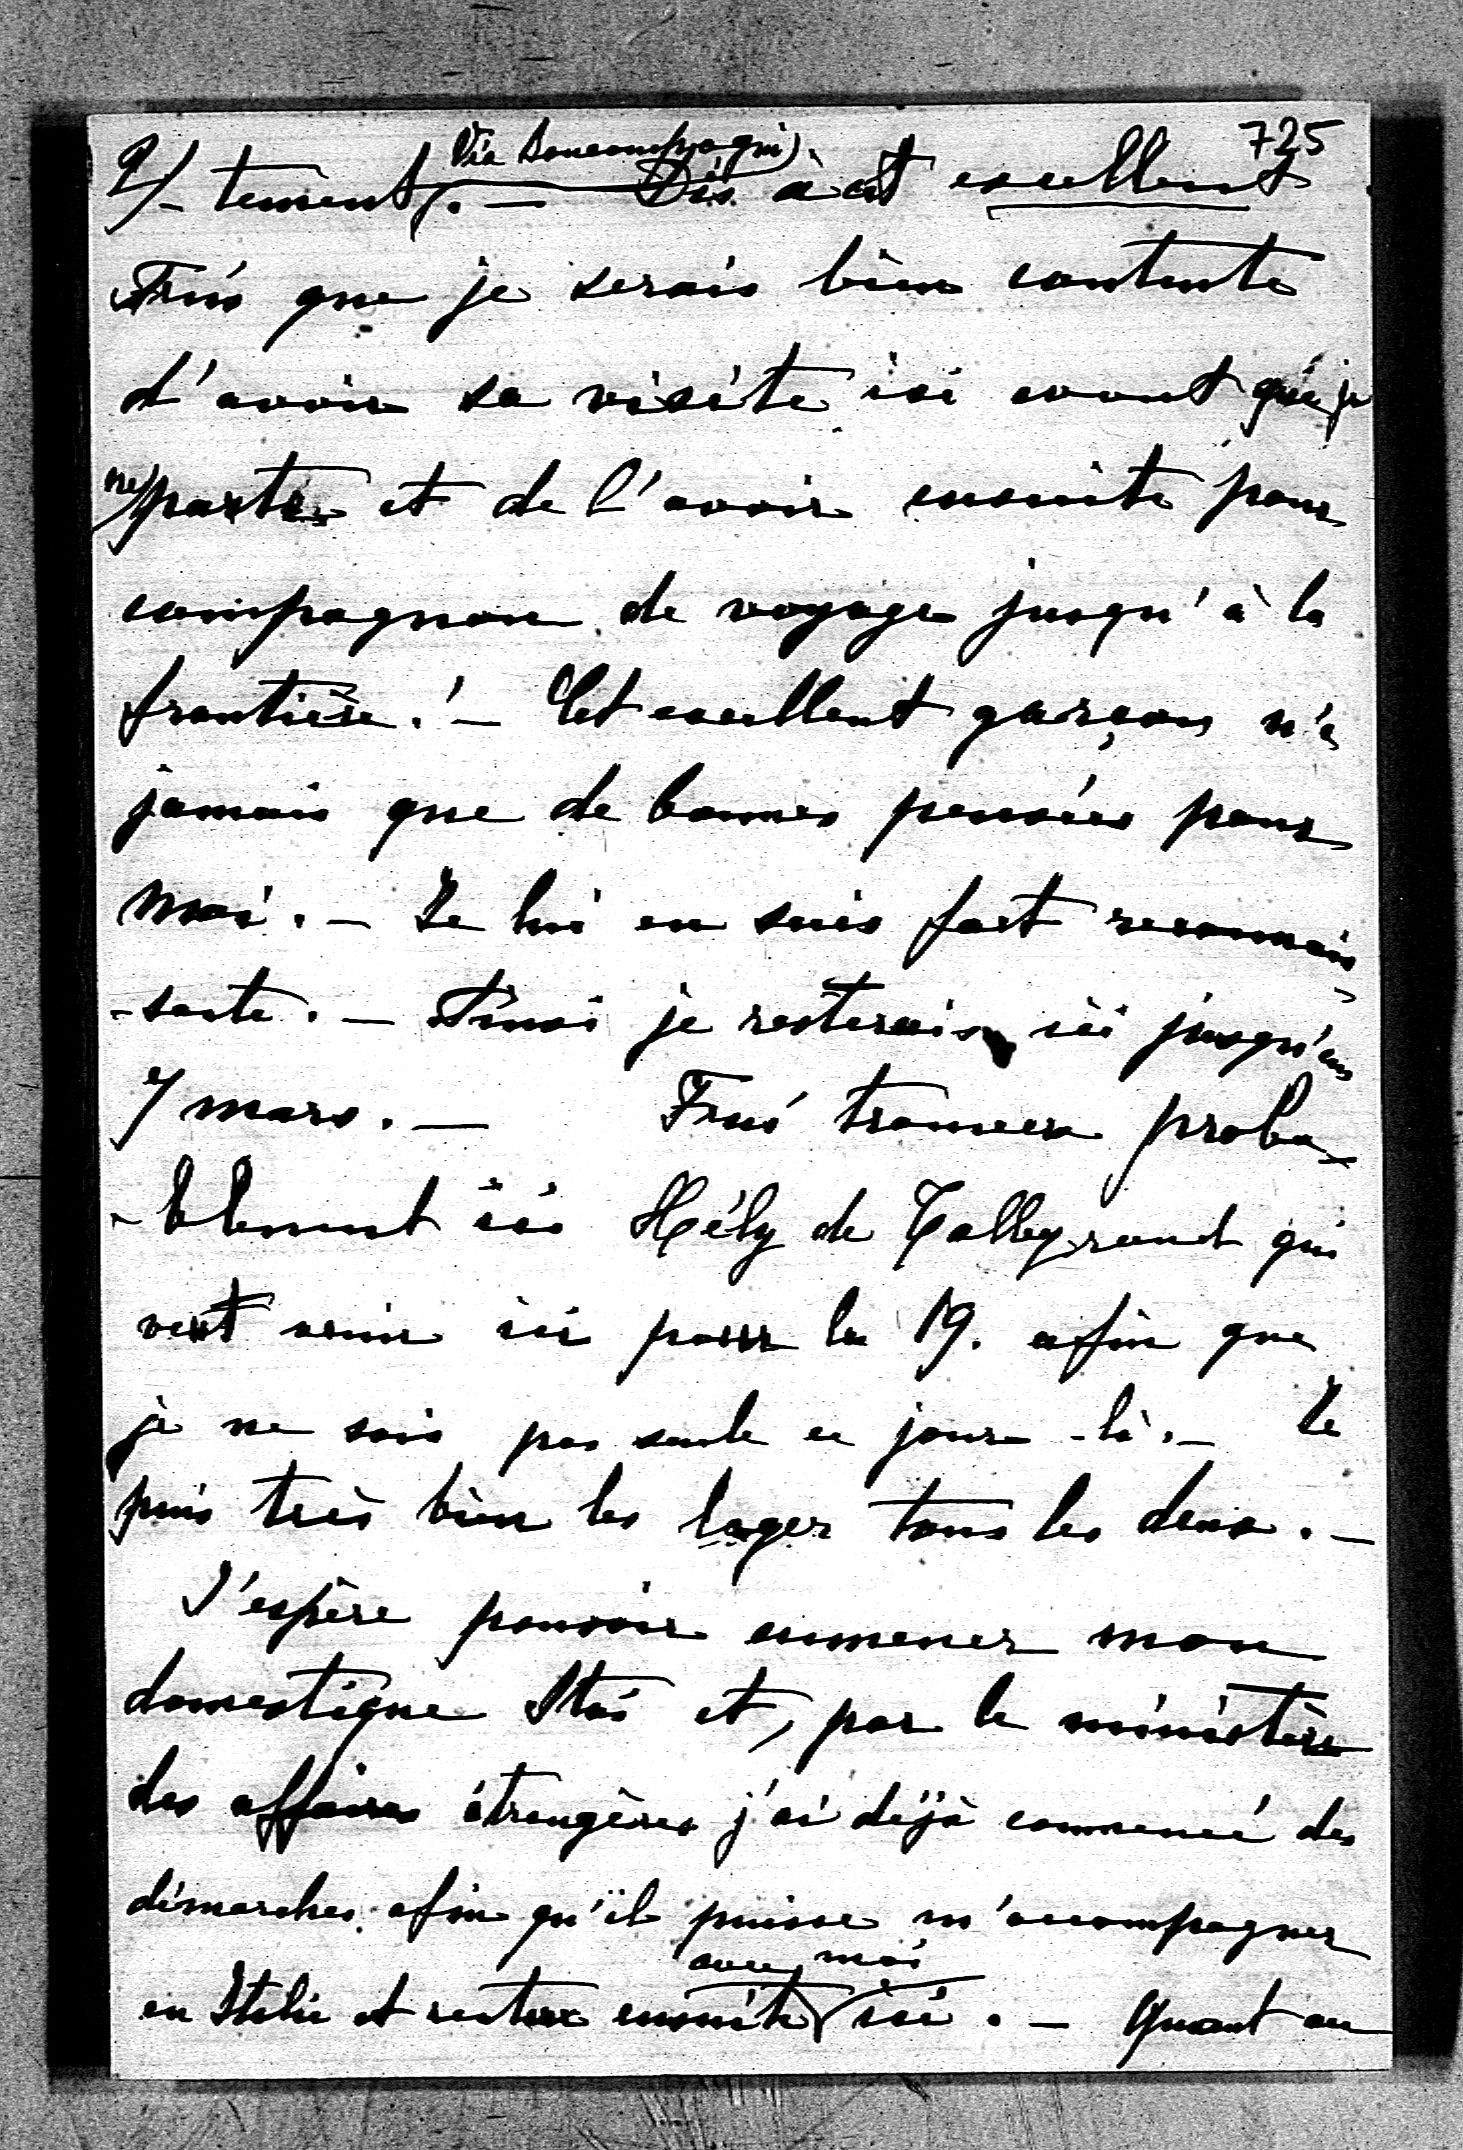 725
2/- tement (Via Boncompagni). — Dis à cet excellent
Frus que je serais bien contente
d'avoir sa visite ici avant que je
ne parte et de l'avoir ensuite pour
compagnon de voyage jusqu'à la
frontière! — Cet excellent garçon n'a
jamais que de bonnes pensées pour
moi. — Je lui en suis fort reconnais-
-sante. — Ainsi je resterais ici jusqu'au
7 mars. — Frus trouvera proba-
-blement ici Hély de Talleyrand qui
veut venir ici pour le 19. afin que
je ne sois pas seule ce jour-là. — Je
puis très bien les loger tous les deux. —
J'espère pouvoir emmener mon
domestique Stas et, par le ministère
des affaires étrangères j'ai déjà commencé des
démarches, afin qu'il puisse m'accompagner
en Italie et rentrer ensuite avec moi ici. — Quant au